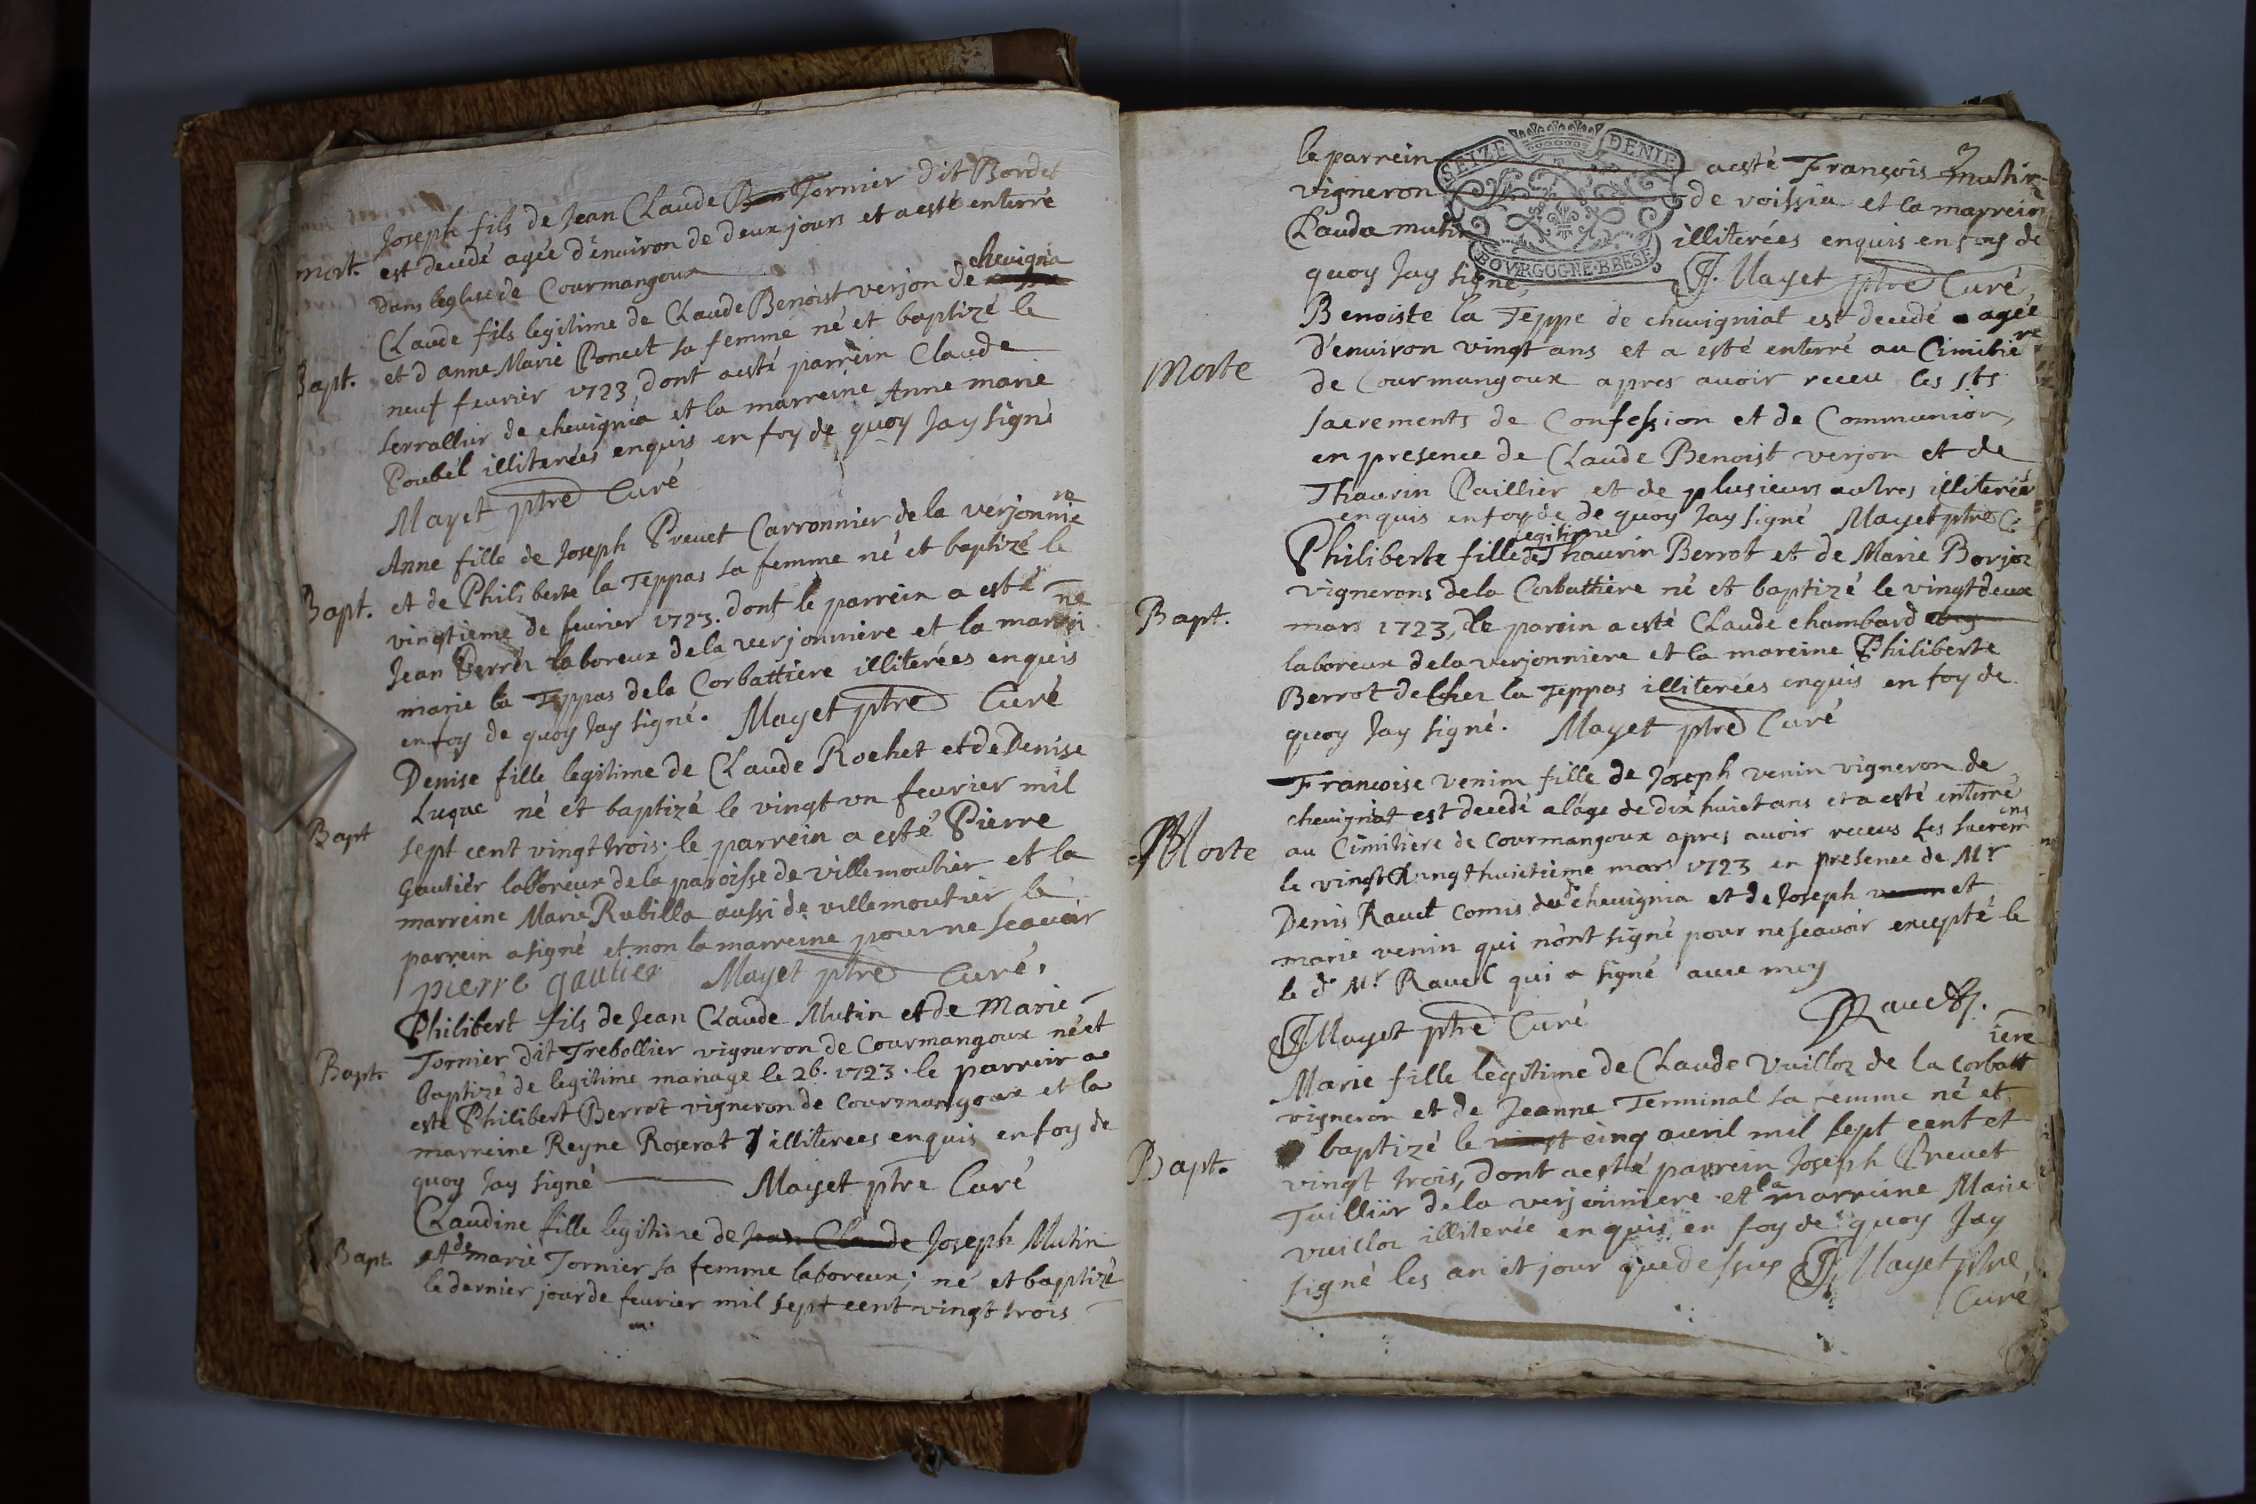 Joseph fils de Jean Claude Tornier dit Bordet
mort. est decedé agée d'environ de deux jours et a esté enterré
dans leglise de Courmangoux
chevignia
Claude fils legitime de Claude Benoist verjon de
et d anne Marie Poncet sa femme né et baptizé le
Bapt. neuf fevrier 1723, dont a esté parrein Claude
serrallier de chevignia et la marreine Anne marie
Poubel illiterées enquis en foy de quoy Jay signé
Mayet ptre Curé
Anne fille de Joseph Prevet Carronnier de la verjonnie re
Bapt. et de Philiberte la Teppas sa femme né et baptizé le
vingtieme de fevrier 1723. dont le parrein a esté
Jean Perret laboreux dela verjonniere et la marrei ne
marie la Teppas dela Corbattiere illiterées enquis
en foy de quoy Jay signé. Mayet ptre Curé
Denise fille legitime de Claude Rochet et de Denise
Luque né et baptizé le vingt vn fevrier mil
Bapt sept cent vingt trois; le parrein a esté Pierre
Gautier laboreux de la paroisse de villemoutier et la
marreine Marie Rubilla aussi de villemoutier le
parrein a signé et non la marreine pour ne scavoir
pierre gautier Mayet ptre Curé.
Philibert fils de Jean Claude Mutin et de Marie
Tornier dit Trebollier vigneron de Courmangoux né et
Bapt. baptizé de legitime mariage le 26. 1723. le parrein a
esté Philibert Berrot vigneron de Courmangoux et la
marreine Reyne Roserat illiterees enquis en foy de
quoy Jay signé Mayet ptre Curé
Claudine fille legitime de Jean Claude Joseph Mutin
Bapt. et de marie Tornier sa femme laboreux; né et baptizé
le dernier jour de fevrier mil sept cent vingt trois
3
SEIZE DENIE
BOURGOGNE BRESE
le parrein a esté François mutin
vigneron de voissia et la marrein
Clauda mutin illiterées enquis en foy de
quoy Jay signé, J. Mayet ptre Curé
Benoiste la Teppe de chevigniat est decedé agée
Morte d'environ vingt ans et a esté enterré au Cimitie re
de Courmangoux apres avoir receu les sts
sacrements de Confession et de Communion,
en presence de Claude Benoist verjon et de
Thaurin Paillier et de plusieurs autres illiterée
enquis en foy de de quoy Jay signé Mayet ptre C
legitime
Philiberte fille de Thaurin Berrot et de Marie Borjoz
vignerons dela Corbattiere né et baptizé le vingt deux
Bapt. mars 1723, le parein a esté Claude chambard
laboreux dela verjonniere et la mareine Philiberte
Berrot de chez la Teppas illiterées enquis en foy de
quoy Jay signé. Mayet ptre Curé
Francoise venim fille de Joseph venin vigneron de
chevigniat est decedé a lage de dix huict ans et a esté enterré
Morte au Cimitiere de Courmangoux apres avoir receus ses sacrem ens
le vingt huictieme mars 1723 en presence de Mr
Denis Ravet comis de chevignia et de Joseph venin et
marie venin qui nont signé pour ne scavoir excepté le
le dt Mr Ravet qui a signé avec moy
J Mayet ptre Curé DRavet
Marie fille legitime de Claude Vuilloz de la Corbatt iere
vigneron et de Jeanne Terminal sa femme né et
Bapt. baptizé le vingt cinq avril mil sept cent et
vingt trois, dont a esté parrein Joseph Prevet
Tuillier de la verjonniere et la marreine Marie
vuilloz illiterée enquis en foy de quoy Jay
signé les an et jour que dessus J. Mayet ptre
Curé